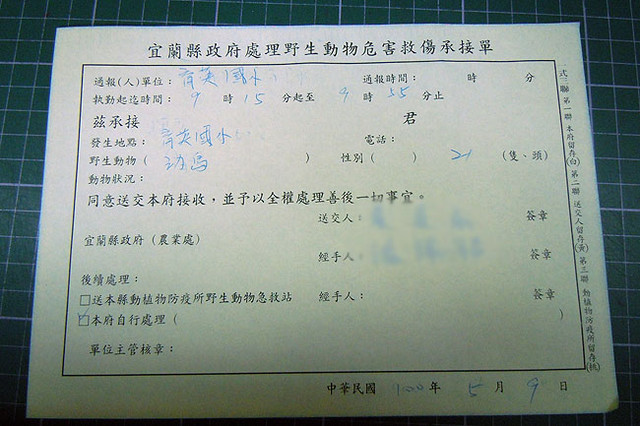 宜蘭縣政府處理野生動物危害救傷承接單
通報(人)單位：育英國小 通報時間： 時 分
執勤起迄時間：9 時 15 分起至 9 時 55 分止
茲承接 君
發生地點：育英國小 電話：
野生動物（幼鳥） 性別（ ） 21 (隻、頭)
動物狀況：
同意送交本府接收，並予以全權處理善後一切事宜。
送交人： 簽章
宜蘭縣政府（農業處）
經手人： 簽章
後續處理：
□送本縣動植物防疫所野生動物急救站 經手人： 簽章
□本府自行處理（ ）
單位主管核章：
中華民國 100 年 5 月 9 日
一式三聯 第一聯 本府留存(白) 第二聯 送交人留存(黃) 第三聯 動植物防疫所留存(桃)